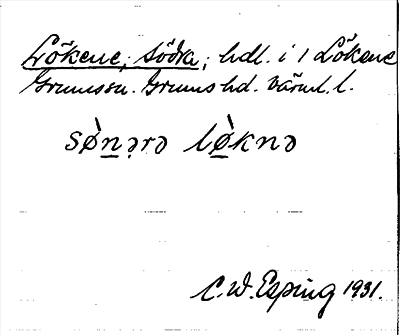 Lökene, södra; hdl. i 1 Lökene
Grumssn. Grums hd. Värml. l.
sø̀nərə lø̀knə
C.W. Esping 1931.